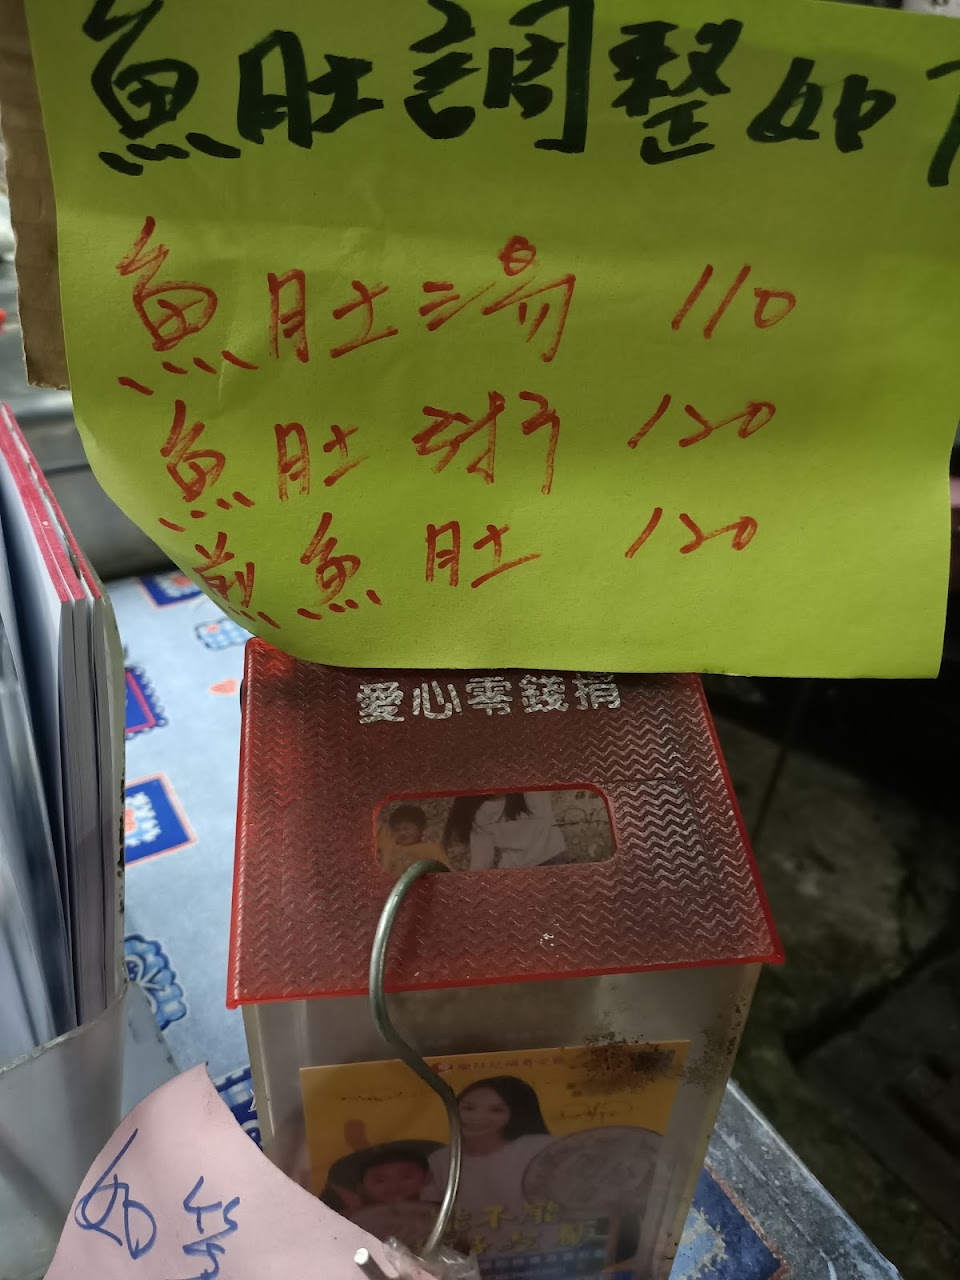 魚肚調整如下
魚肚湯 110
魚肚粥 120
煎魚肚 120
愛心零錢捐